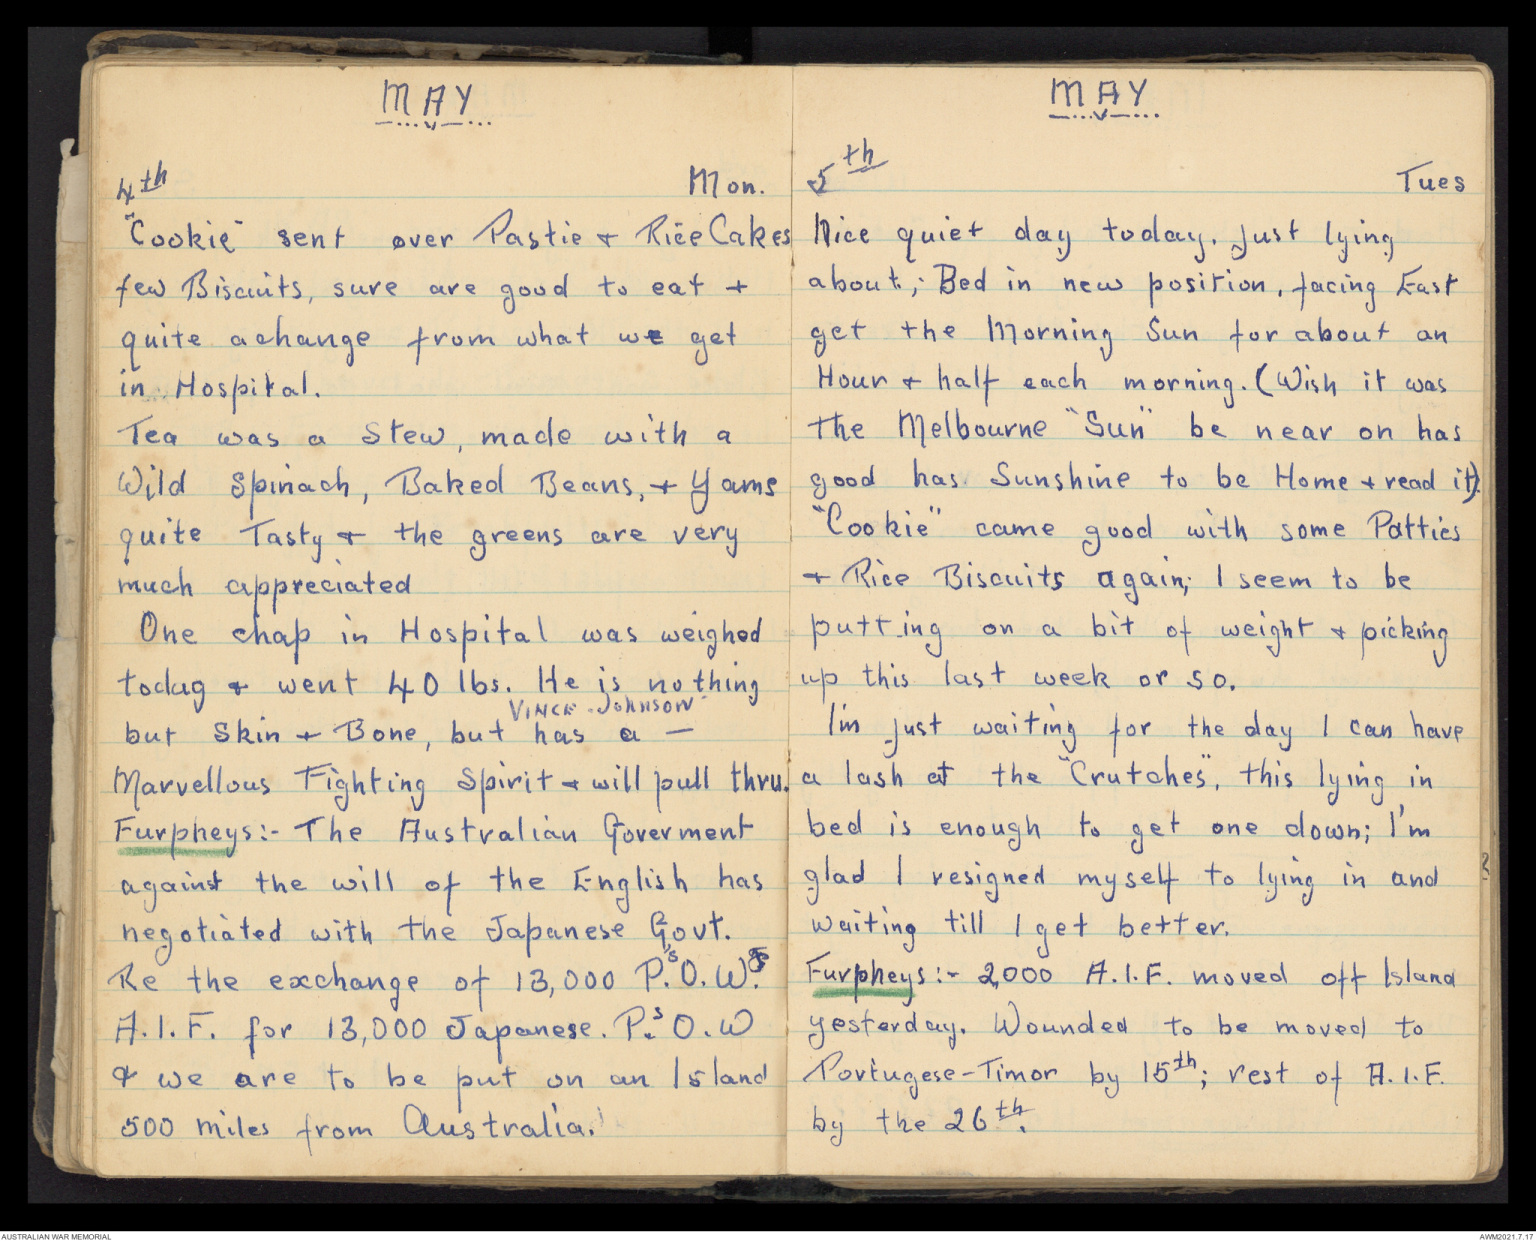 MAY
4th Mon.
"Cookie" sent over Pastie + Rice Cakes
few Biscuits, sure are good to eat +
quite a change from what we get
in Hospital.
Tea was a Stew, made with a
Wild Spinach, Baked Beans, + Yams
quite Tasty + the greens are very
much appreciated
One chap in Hospital was weighed
today + went 40 lbs. He is nothing
VINCE JOHNSON
but Skin + Bone, but has a —
Marvellous Fighting Spirit + will pull thru.
Furpheys:- The Australian Goverment
against the will of the English has
negotiated with the Japanese Govt.
Re the exchange of 13,000 P.'s O. W.
A.I.F. for 13,000 Japanese. P.'s O. W
+ we are to be put on an Island
500 miles from Australia.
MAY
5th Tues
Nice quiet day today. Just lying
about; Bed in new position, facing East
get the Morning Sun for about an
Hour + half each morning. (Wish it was
the Melbourne "Sun" be near on has
good has Sunshine to be Home + read it).
"Cookie" came good with some Patties
+ Rice Biscuits again; I seem to be
putting on a bit of weight + picking
up this last week or so.
I'm just waiting for the day I can have
a lash at the "Crutches", this lying in
bed is enough to get one down; I'm
glad I resigned myself to lying in and
waiting till I get better.
Furpheys:- 2,000 A.I.F. moved off Island
yesterday. Wounded to be moved to
Portugese-Timor by 15th; rest of A.I.F.
by the 26th.
AUSTRALIAN WAR MEMORIAL
AWM2021.7.17